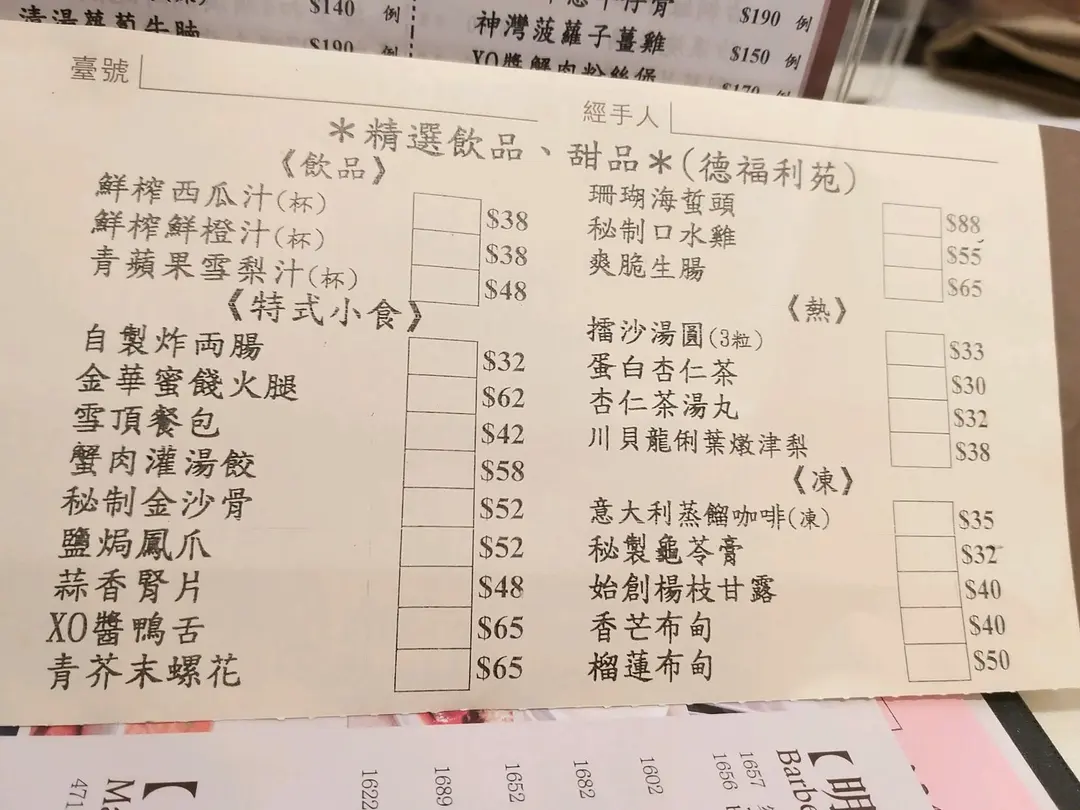 $140 例
清湯蘿蔔牛腩 $190 例
$190 例
神灣菠蘿子薑雞 $150 例
XO醬蟹肉粉絲煲 $170 例
臺號
經手人
*精選飲品、甜品*(德福利苑)
《飲品》
鮮榨西瓜汁(杯) $38
鮮榨鮮橙汁(杯) $38
青蘋果雪梨汁(杯) $48
《特式小食》
自製炸両腸 $32
金華蜜餞火腿 $62
雪頂餐包 $42
蟹肉灌湯餃 $58
秘制金沙骨 $52
鹽焗鳳爪 $52
蒜香腎片 $48
XO醬鴨舌 $65
青芥末螺花 $65
珊瑚海蜇頭 $88
秘制口水雞 $55
爽脆生腸 $65
《熱》
擂沙湯圓(3粒) $33
蛋白杏仁茶 $30
杏仁茶湯丸 $32
川貝龍俐葉燉津梨 $38
《凍》
意大利蒸餾咖啡(凍) $35
秘製龜苓膏 $32
始創楊枝甘露 $40
香芒布甸 $40
榴蓮布甸 $50
471
Ma
【
1622
1689
1652
1682
1602
1656
1657
Barbe
【明